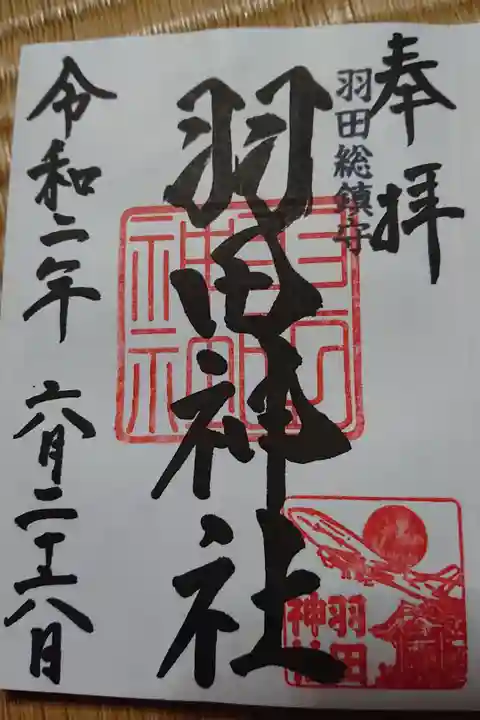 奉拝
羽田総鎮守
羽田神社
令和二年 六月二十八日
羽田
神社